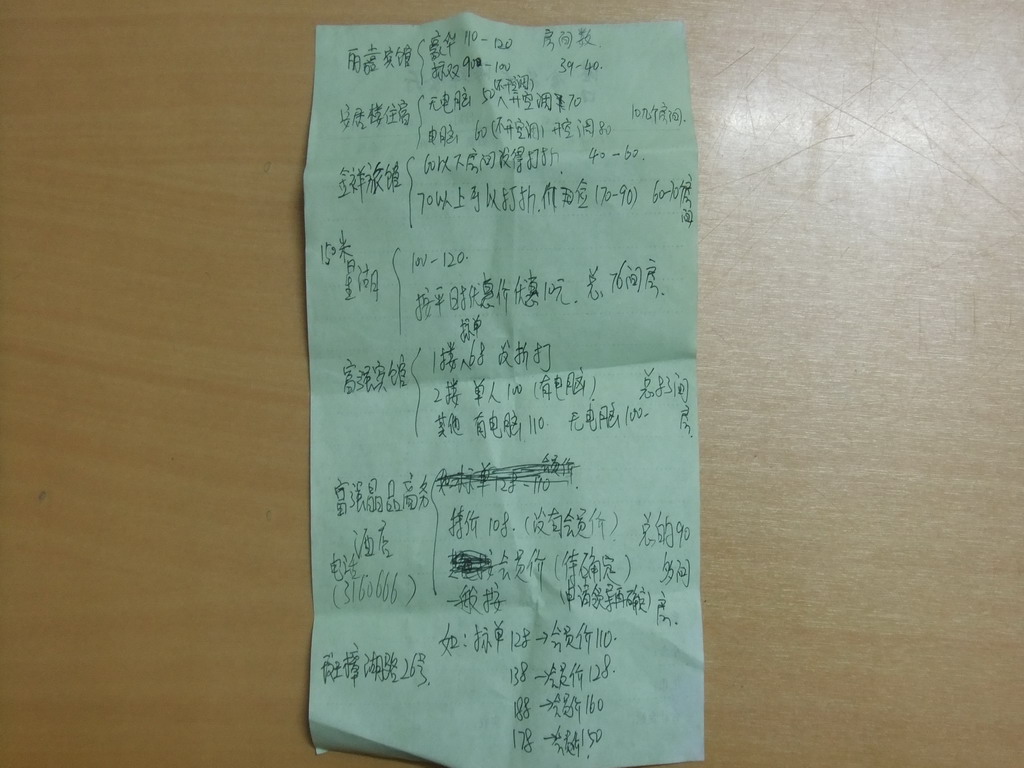 丽嘉宾馆 豪华 110-120 房间数
标双 90-100 39-40.
安居楼住宿 无电脑 50(不开空调) 开空调 70
电脑 60(不开空调) 开空调 80 10几个房间.
金祥旅馆 60以下房间 打折. 40-60.
70以上可以打折. (70-90) 60-70房间
150米 星湖 100-120.
按平日优惠价优惠10元. 总76间房.
标单
富强宾馆 1楼 68 没折打
2楼 单人100 (有电脑) 总 间房.
其他 有电脑110. 无电脑100.
富强晶品商务酒店 标单 128-110
特价 108. (没有会员价) 总约90多间房.
电话 (3160666) 会员价 (待确定)
一般按 申请 再确定)
如: 标单 128→会员价110.
樟湖路26号. 138→会员价128.
188→会员价160
178→会员价150